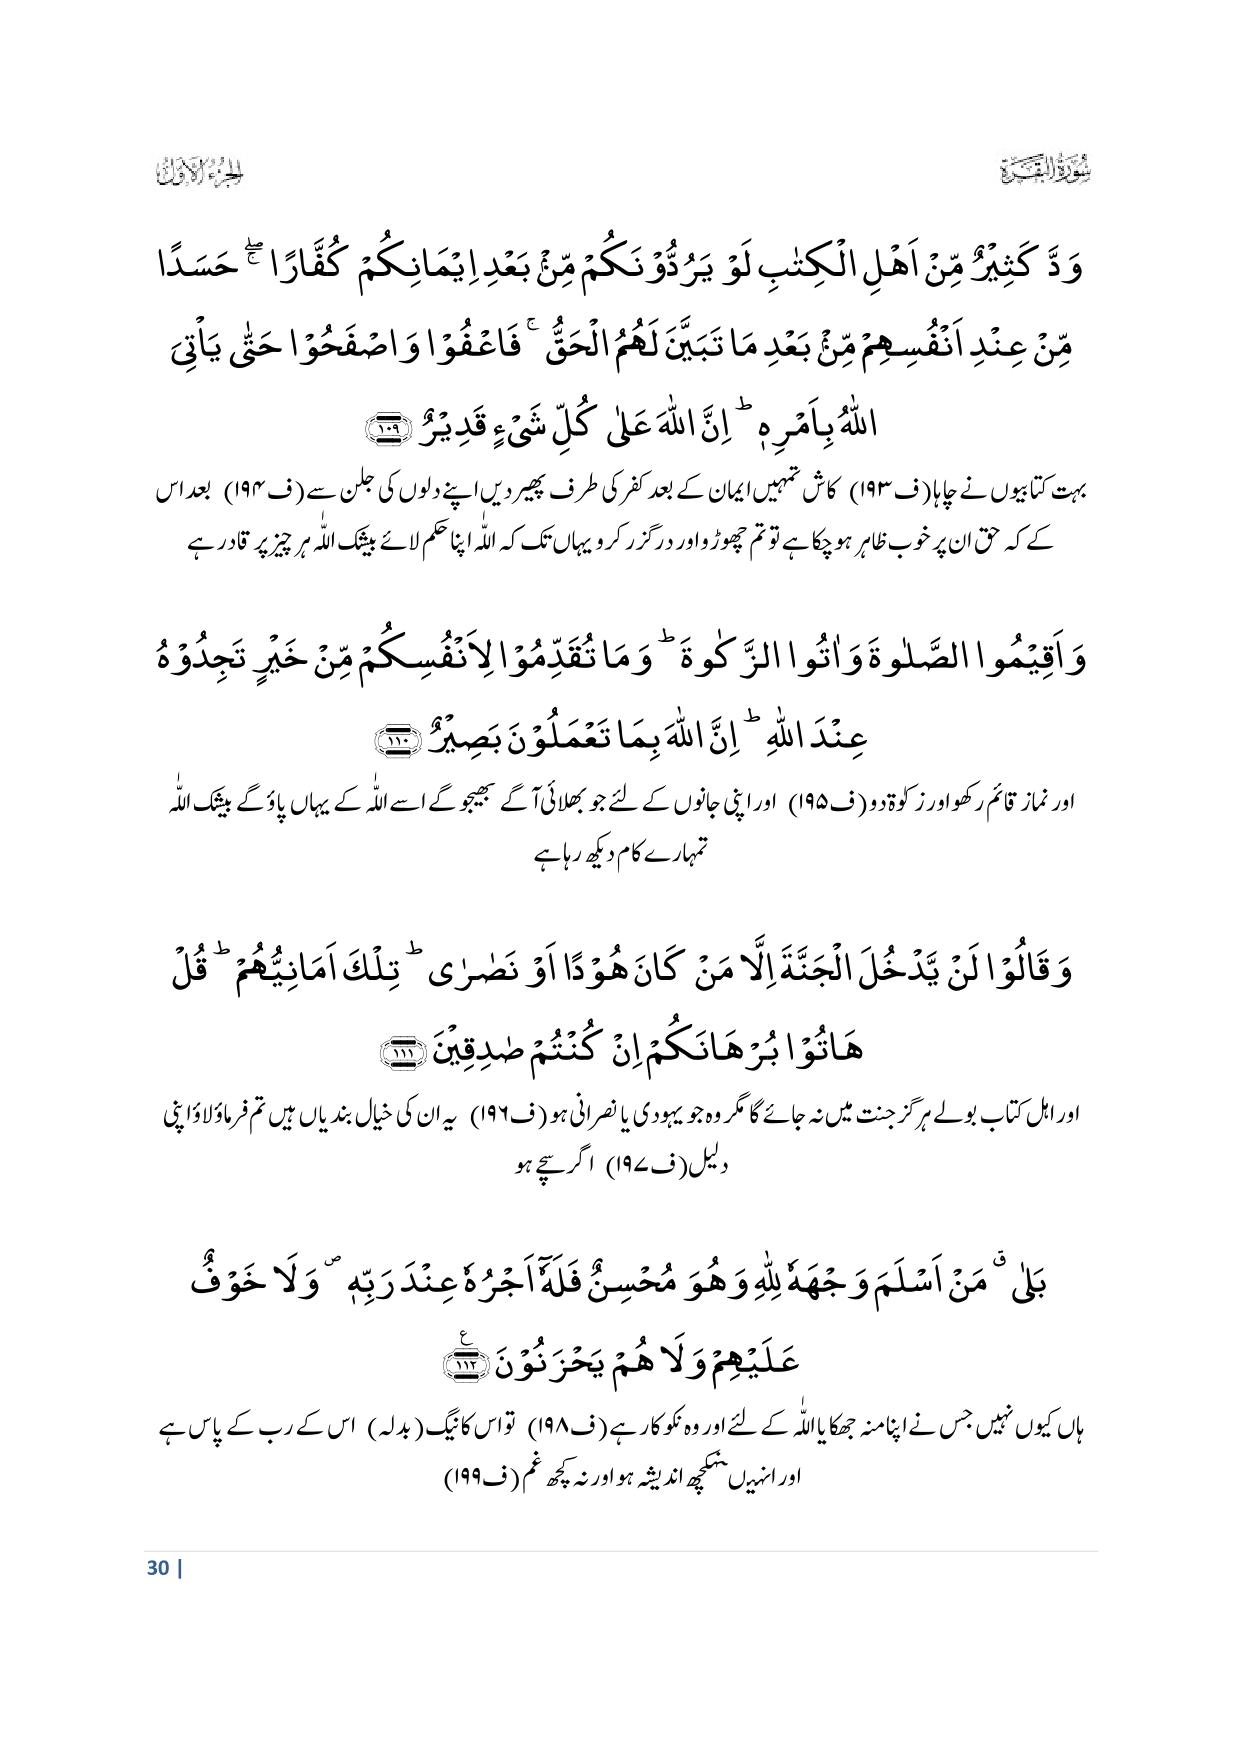 سُوْرَۃُ الْبَقَـرَۃِ
الجزء الاوّل
وَدَّ کَثِیۡرٌ مِّنۡ اَہۡلِ الْکِتٰبِ لَوْ یَرُدُّوۡنَکُمۡ مِّنۡۢ بَعْدِ اِیۡمَانِکُمْ کُفَّارًا ۚۖ حَسَدًا
مِّنْ عِنۡدِ اَنۡفُسِہِمۡ مِّنۡۢ بَعْدِ مَا تَبَیَّنَ لَہُمُ الْحَقُّ ۚ فَاعْفُوۡا وَاصْفَحُوۡا حَتّٰی یَاۡتِیَ
اللہُ بِاَمْرِہٖ ؕ اِنَّ اللہَ عَلٰی کُلِّ شَیۡءٍ قَدِیۡرٌ ﴿۱۰۹﴾
بہت کتابیوں نے چاہا(ف۱۹۳) کاش تمہیں ایمان کے بعد کفر کی طرف پھیر دیں اپنے دلوں کی جلن سے(ف۱۹۴) بعد اس
کے کہ حق ان پر خوب ظاہر ہو چکا ہے تو تم چھوڑو اور درگزر کرو یہاں تک کہ اللّٰہ اپنا حکم لائے بیشک اللّٰہ ہر چیز پر قادر ہے
وَاَقِیۡمُوا الصَّلٰوۃَ وَاٰتُوا الزَّکٰوۃَ ؕ وَمَا تُقَدِّمُوۡا لِاَنۡفُسِکُمۡ مِّنْ خَیۡرٍ تَجِدُوۡہُ
عِنۡدَ اللہِ ؕ اِنَّ اللہَ بِمَا تَعْمَلُوۡنَ بَصِیۡرٌ ﴿۱۱۰﴾
اور نماز قائم رکھو اور زکوٰۃ دو(ف۱۹۵) اور اپنی جانوں کے لئے جو بھلائی آگے بھیجو گے اسے اللّٰہ کے یہاں پاؤ گے بیشک اللّٰہ
تمہارے کام دیکھ رہا ہے
وَقَالُوۡا لَنۡ یَّدْخُلَ الْجَنَّۃَ اِلَّا مَنۡ کَانَ ہُوۡدًا اَوْ نَصٰرٰی ؕ تِلْکَ اَمَانِیُّہُمْ ؕ قُلْ
ہَاتُوۡا بُرْہَانَکُمْ اِنۡ کُنۡتُمْ صٰدِقِیۡنَ ﴿۱۱۱﴾
اور اہل کتاب بولے ہرگز جنت میں نہ جائے گا مگر وہ جو یہودی یا نصرانی ہو(ف۱۹۶) یہ ان کی خیال بندیاں ہیں تم فرماؤ لاؤ اپنی
دلیل(ف۱۹۷) اگر سچے ہو
بَلٰی ٭ مَنْ اَسْلَمَ وَجْہَہٗ لِلہِ وَہُوَ مُحْسِنٌ فَلَہٗۤ اَجْرُہٗ عِنۡدَ رَبِّہٖ ۪ وَلَا خَوْفٌ
عَلَیۡہِمْ وَلَا ہُمْ یَحْزَنُوۡنَ ﴿۱۱۲﴾٪
ہاں کیوں نہیں جس نے اپنا منہ جھکایا اللّٰہ کے لئے اور وہ نکو کار ہے(ف۱۹۸) تو اس کا نیگ(بدلہ) اس کے رب کے پاس ہے
اور انہیں نہ کچھ اندیشہ ہو اور نہ کچھ غم(ف۱۹۹)
30 |